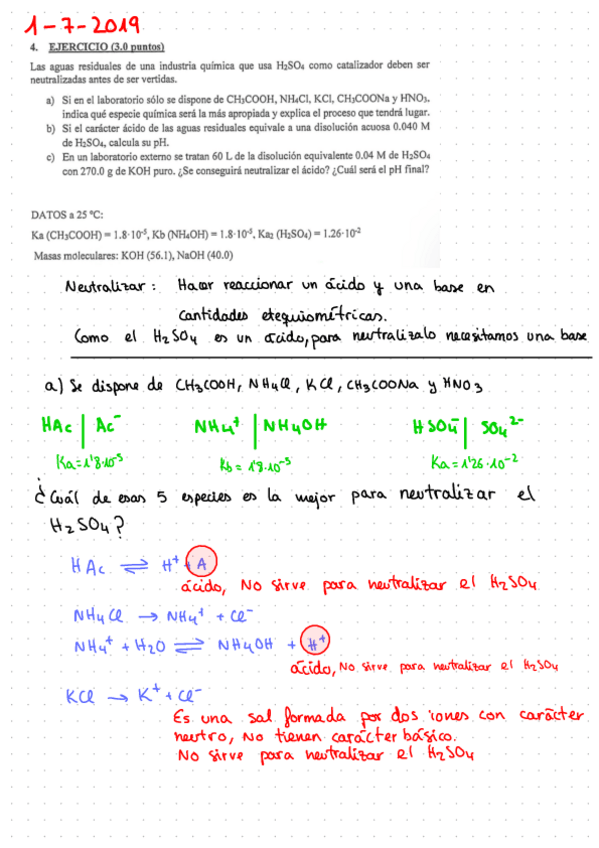 1-7-2019
4. EJERCICIO (3.0 puntos)
Las aguas residuales de una industria química que usa H₂SO₄ como catalizador deben ser
neutralizadas antes de ser vertidas.
a) Si en el laboratorio sólo se dispone de CH₃COOH, NH₄Cl, KCl, CH₃COONa y HNO₃,
indica qué especie química será la más apropiada y explica el proceso que tendrá lugar.
b) Si el carácter ácido de las aguas residuales equivale a una disolución acuosa 0.040 M
de H₂SO₄, calcula su pH.
c) En un laboratorio externo se tratan 60 L de la disolución equivalente 0.04 M de H₂SO₄
con 270.0 g de KOH puro. ¿Se conseguirá neutralizar el ácido? ¿Cuál será el pH final?
DATOS a 25 ºC:
Ka (CH₃COOH) = 1.8·10⁻⁵, Kb (NH₄OH) = 1.8·10⁻⁵, Ka₂ (H₂SO₄) = 1.26·10⁻²
Masas moleculares: KOH (56.1), NaOH (40.0)
Neutralizar: Hacer reaccionar un ácido y una base en
cantidades etequiométricas.
Como el H₂SO₄ es un ácido, para neutralizalo necesitamos una base
a) Se dispone de CH₃COOH, NH₄Cl, KCl, CH₃COONa y HNO₃
HAc | Ac⁻ NH₄⁺ | NH₄OH HSO₄⁻ | SO₄²⁻
Ka=1'8·10⁻⁵ Kb = 1'8·10⁻⁵ Ka=1'26·10⁻²
¿Cuál de esas 5 especies es la mejor para neutralizar el
H₂SO₄?
HAc ⇌ H⁺ + A
ácido, No sirve para neutralizar el H₂SO₄
NH₄Cl → NH₄⁺ + Cl⁻
NH₄⁺ + H₂O ⇌ NH₄OH + H⁺
ácido, No sirve para neutralizar el H₂SO₄
KCl → K⁺ + Cl⁻
Es una sal formada por dos iones con carácter
neutro, No tienen carácter básico.
No sirve para neutralizar el H₂SO₄